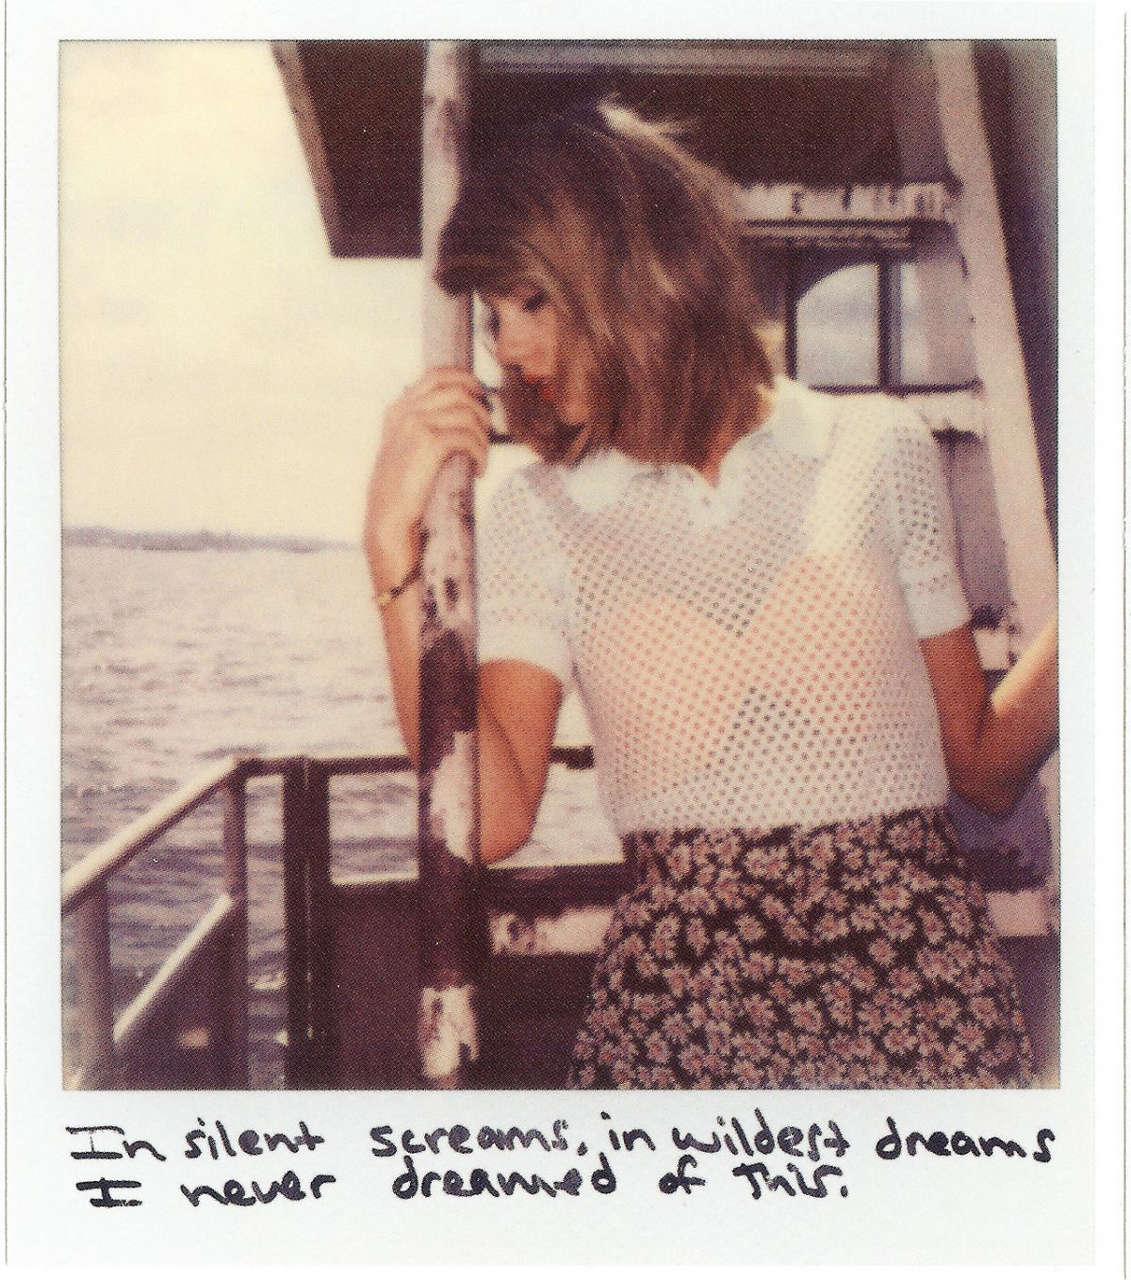 In silent screams, in wildest dreams
I never dreamed of this.